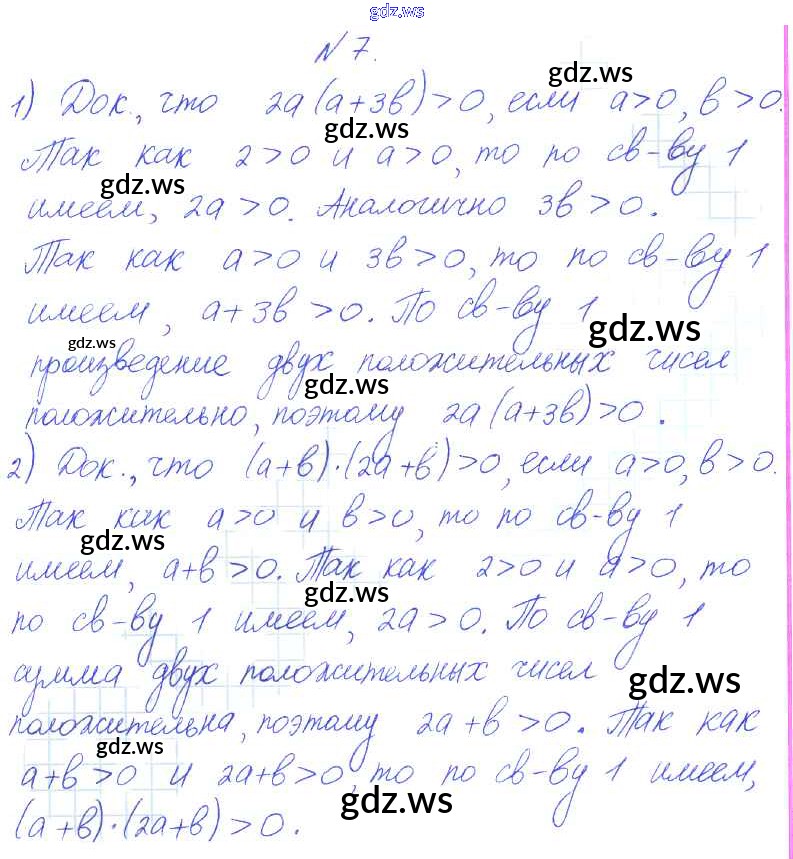 gdz.ws
N 7.
gdz.ws
1) Док., что 2a(a+3в)>0, если a>0, в>0.
gdz.ws
Так как 2>0 и a>0, то по св-ву 1
gdz.ws
имеем, 2a>0. Аналогично 3в>0.
Так как a>0 и 3в>0, то по св-ву 1
имеем, a+3в>0. По св-ву 1
gdz.ws
gdz.ws
произведение двух положительных чисел
gdz.ws
положительно, поэтому 2a(a+3в)>0.
2) Док., что (a+в)·(2a+в)>0, если a>0, в>0.
Так как a>0 и в>0, то по св-ву 1
gdz.ws
имеем, a+в>0. Так как 2>0 и a>0, то
gdz.ws
по св-ву 1 имеем, 2a>0. По св-ву 1
сумма двух положительных чисел
gdz.ws
положительна, поэтому 2a+в>0. Так как
gdz.ws
a+в>0 и 2a+в>0, то по св-ву 1 имеем,
gdz.ws
(a+в)·(2a+в)>0.